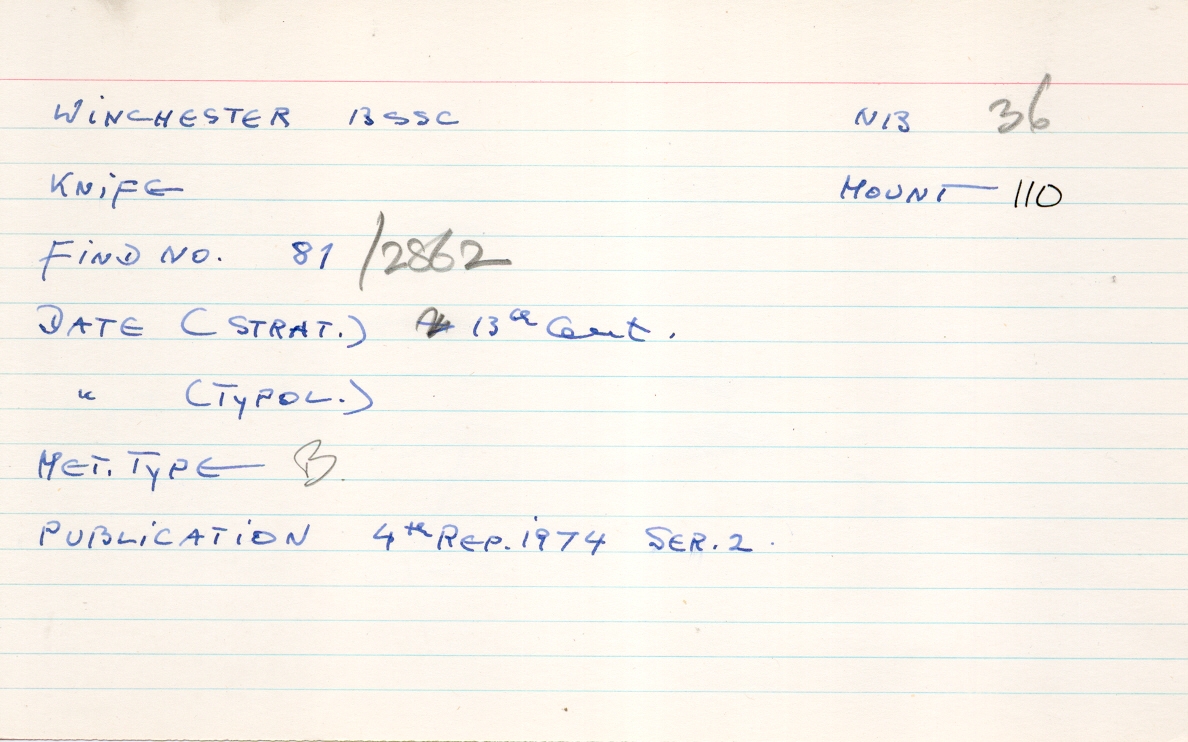 WINCHESTER BSSC NB 36
KNIFE MOUNT 110
FIND NO. 81/2862
DATE (STRAT.) 13th Cent.
" (TYPOL.)
MET. TYPE B.
PUBLICATION 4th REP. 1974 SER. 2.